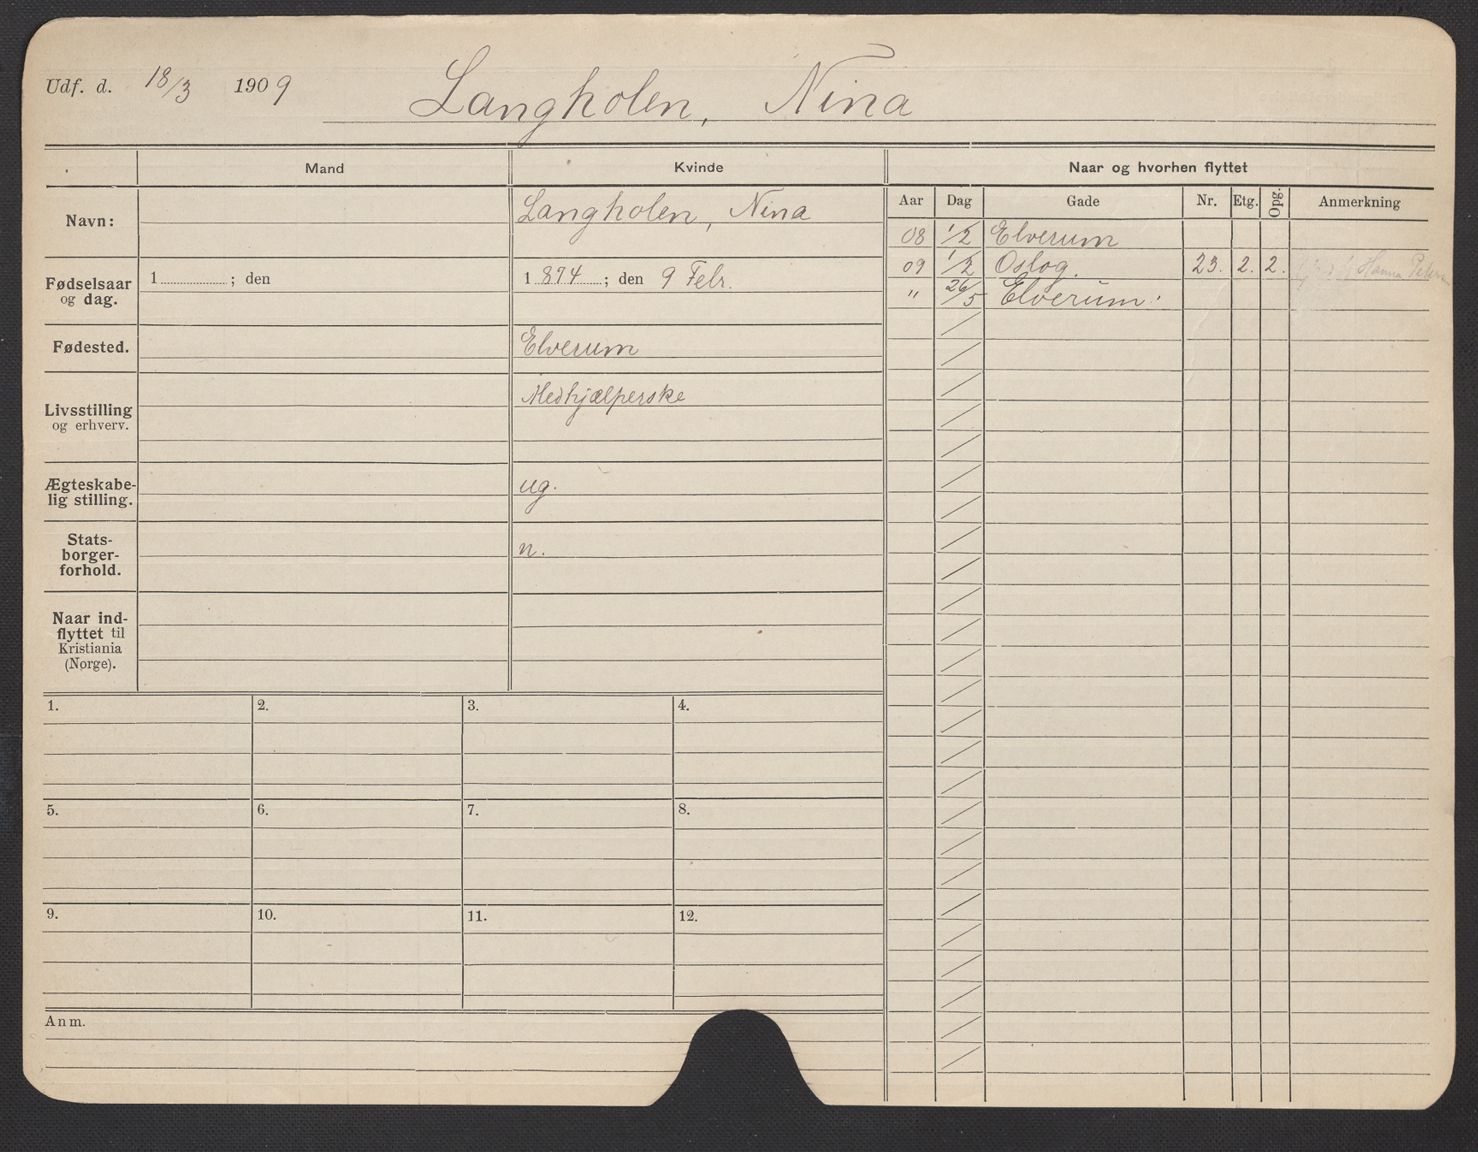 Udf. d. 18/3 1909 Langholen, Nina
Mand Kvinde Naar og hvorhen flyttet
Aar Dag Gade Nr. Etg. Opg. Anmerkning
Navn: Langholen, Nina
08 1/2 Elverum
09 1/2 Oslog. 23. 2. 2. Hanna
" 26/5 Elverum.
Fødselsaar
og dag.
1 ; den 1874 ; den 9 Febr.
Fødested. Elverum
Livsstilling
og erhverv.
Medhjælperske
Ægteskabe-
lig stilling.
ug.
Stats-
borger-
forhold.
n.
Naar ind-
flyttet til
Kristiania
(Norge).
1. 2. 3. 4.
5. 6. 7. 8.
9. 10. 11. 12.
Anm.